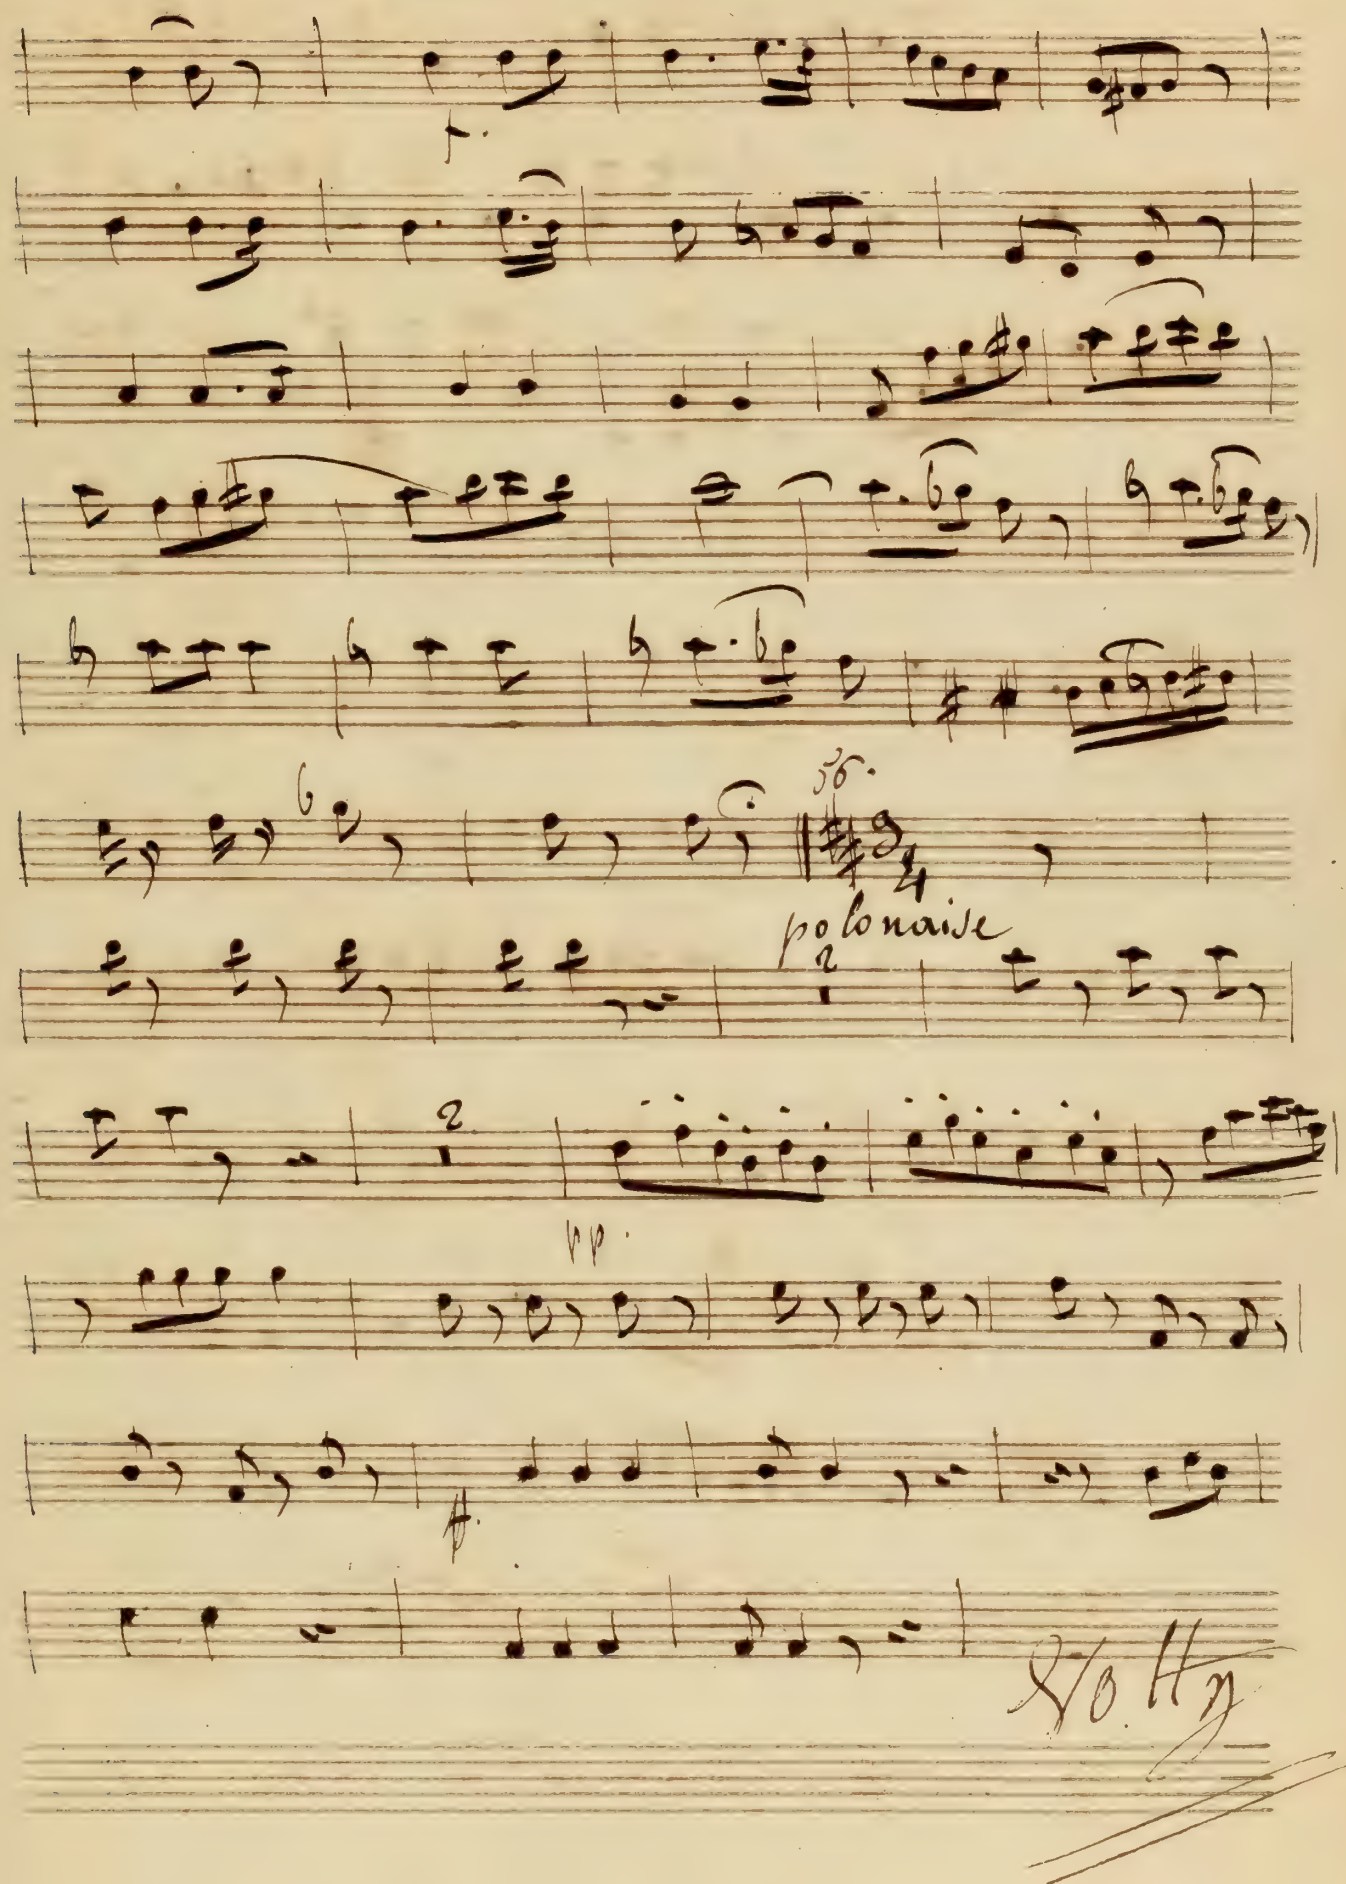 f.
56.
3
4
polonaise
2
2
pp.
ff.
Volty